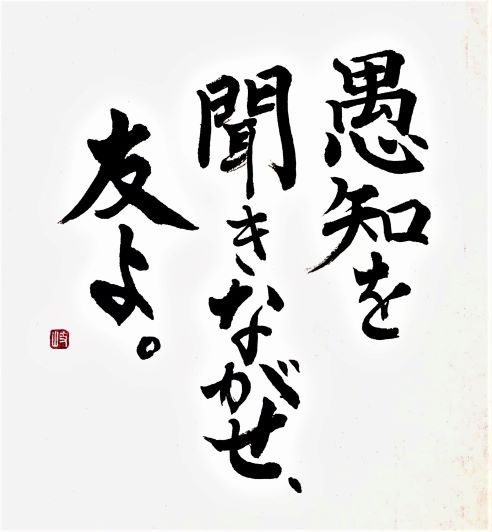 愚知を
聞きながせ、
友よ。
岐